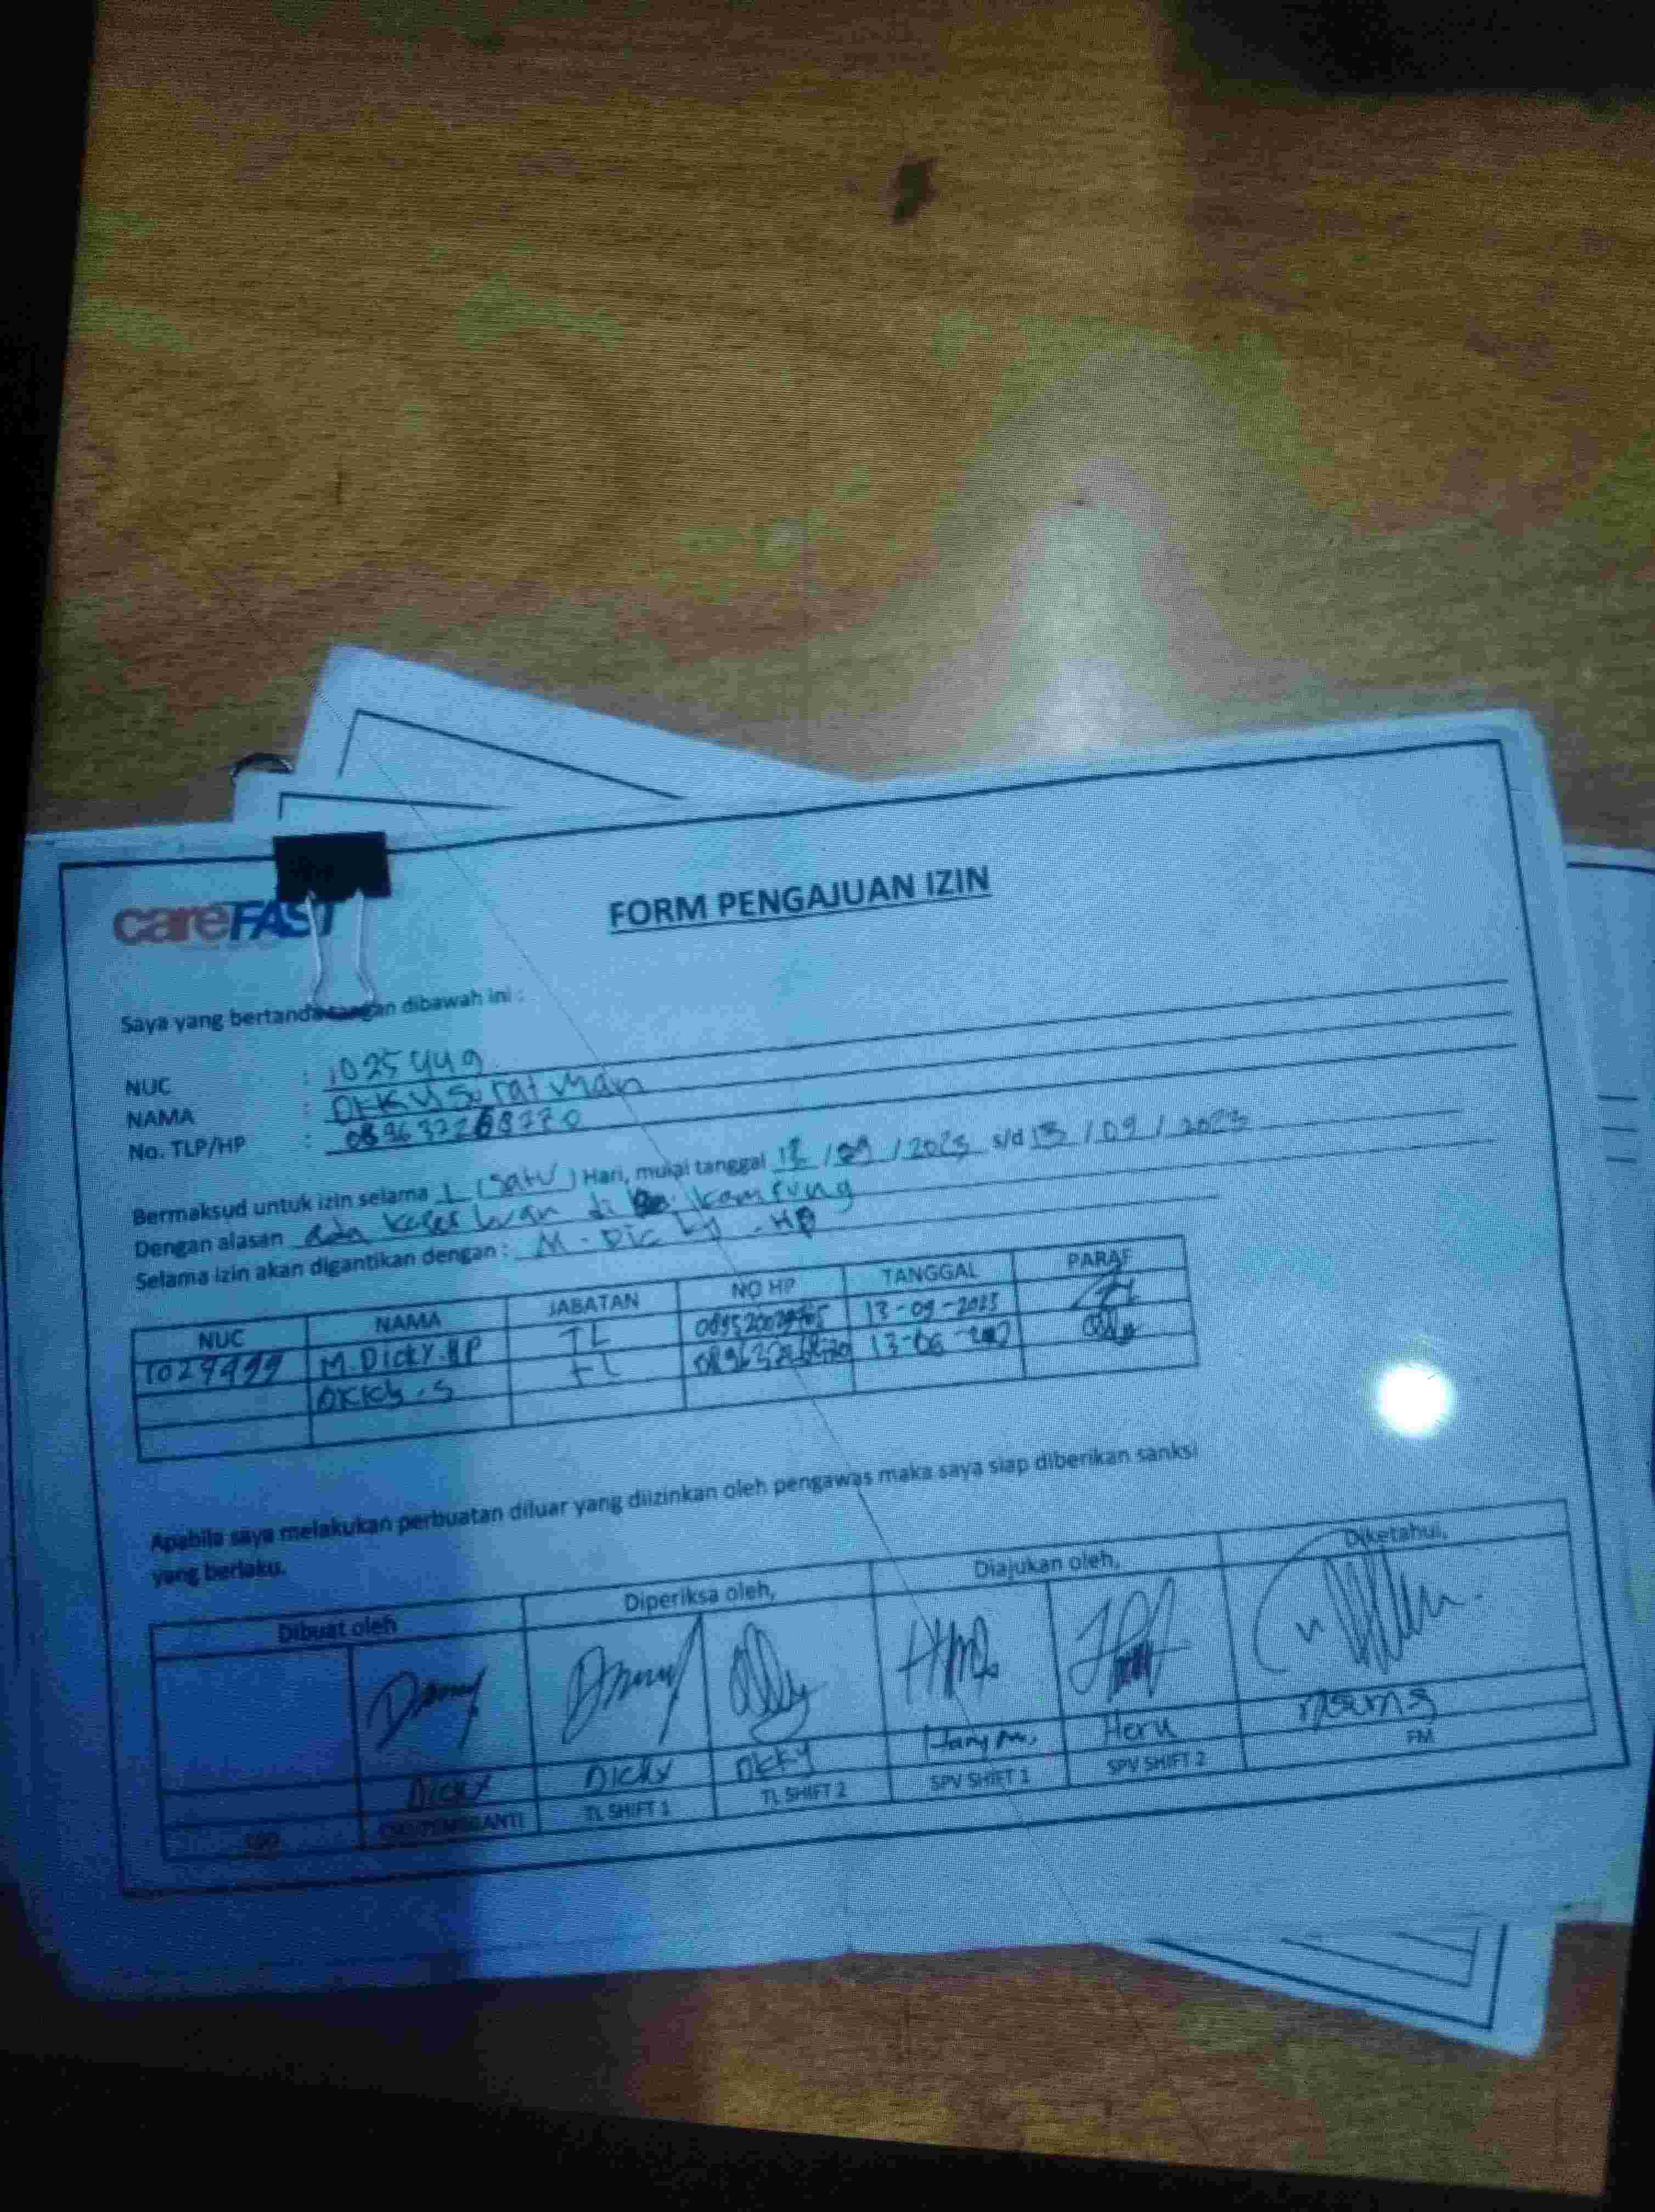 careFAST
FORM PENGAJUAN IZIN
Saya yang bertanda tangan dibawah ini :
NUC : 1025449
NAMA : Okky Suratman
No. TLP/HP : 089637268770
Bermaksud untuk izin selama 1 (Satu) Hari, mulai tanggal 13 / 09 / 2023 s/d 13 / 09 / 2023
Dengan alasan ada keperluan di kampung
Selama izin akan digantikan dengan : M. Dicky. HP
NUC NAMA JABATAN NO HP TANGGAL PARAF
1027499 M. Dicky. HP TL 13-09-2023
Okky. S TL
Apabila saya melakukan perbuatan diluar yang diizinkan oleh pengawas maka saya siap diberikan sanksi
yang berlaku.
Dibuat oleh Diperiksa oleh, Diajukan oleh, Diketahui,
Dicky Dicky Okky Hary M. Heru
TL SHIFT 1 TL SHIFT 2 SPV SHIFT 1 SPV SHIFT 2 FM